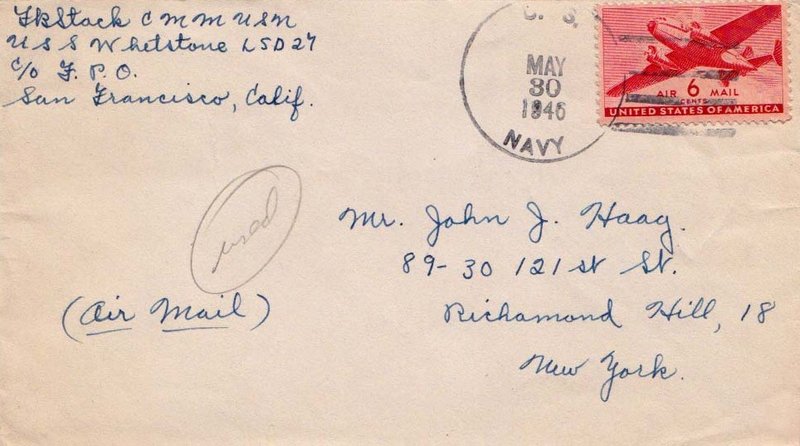 FKStack C M M USN
U S S Whetstone LSD27
C/o F. P. O.
San Francisco, Calif.
U. S.
MAY
30
1946
NAVY
AIR 6 MAIL
CENTS
UNITED STATES OF AMERICA
used
Mr. John J. Haag.
89-30 121 st St.
(Air Mail)
Richamond Hill, 18
New York.